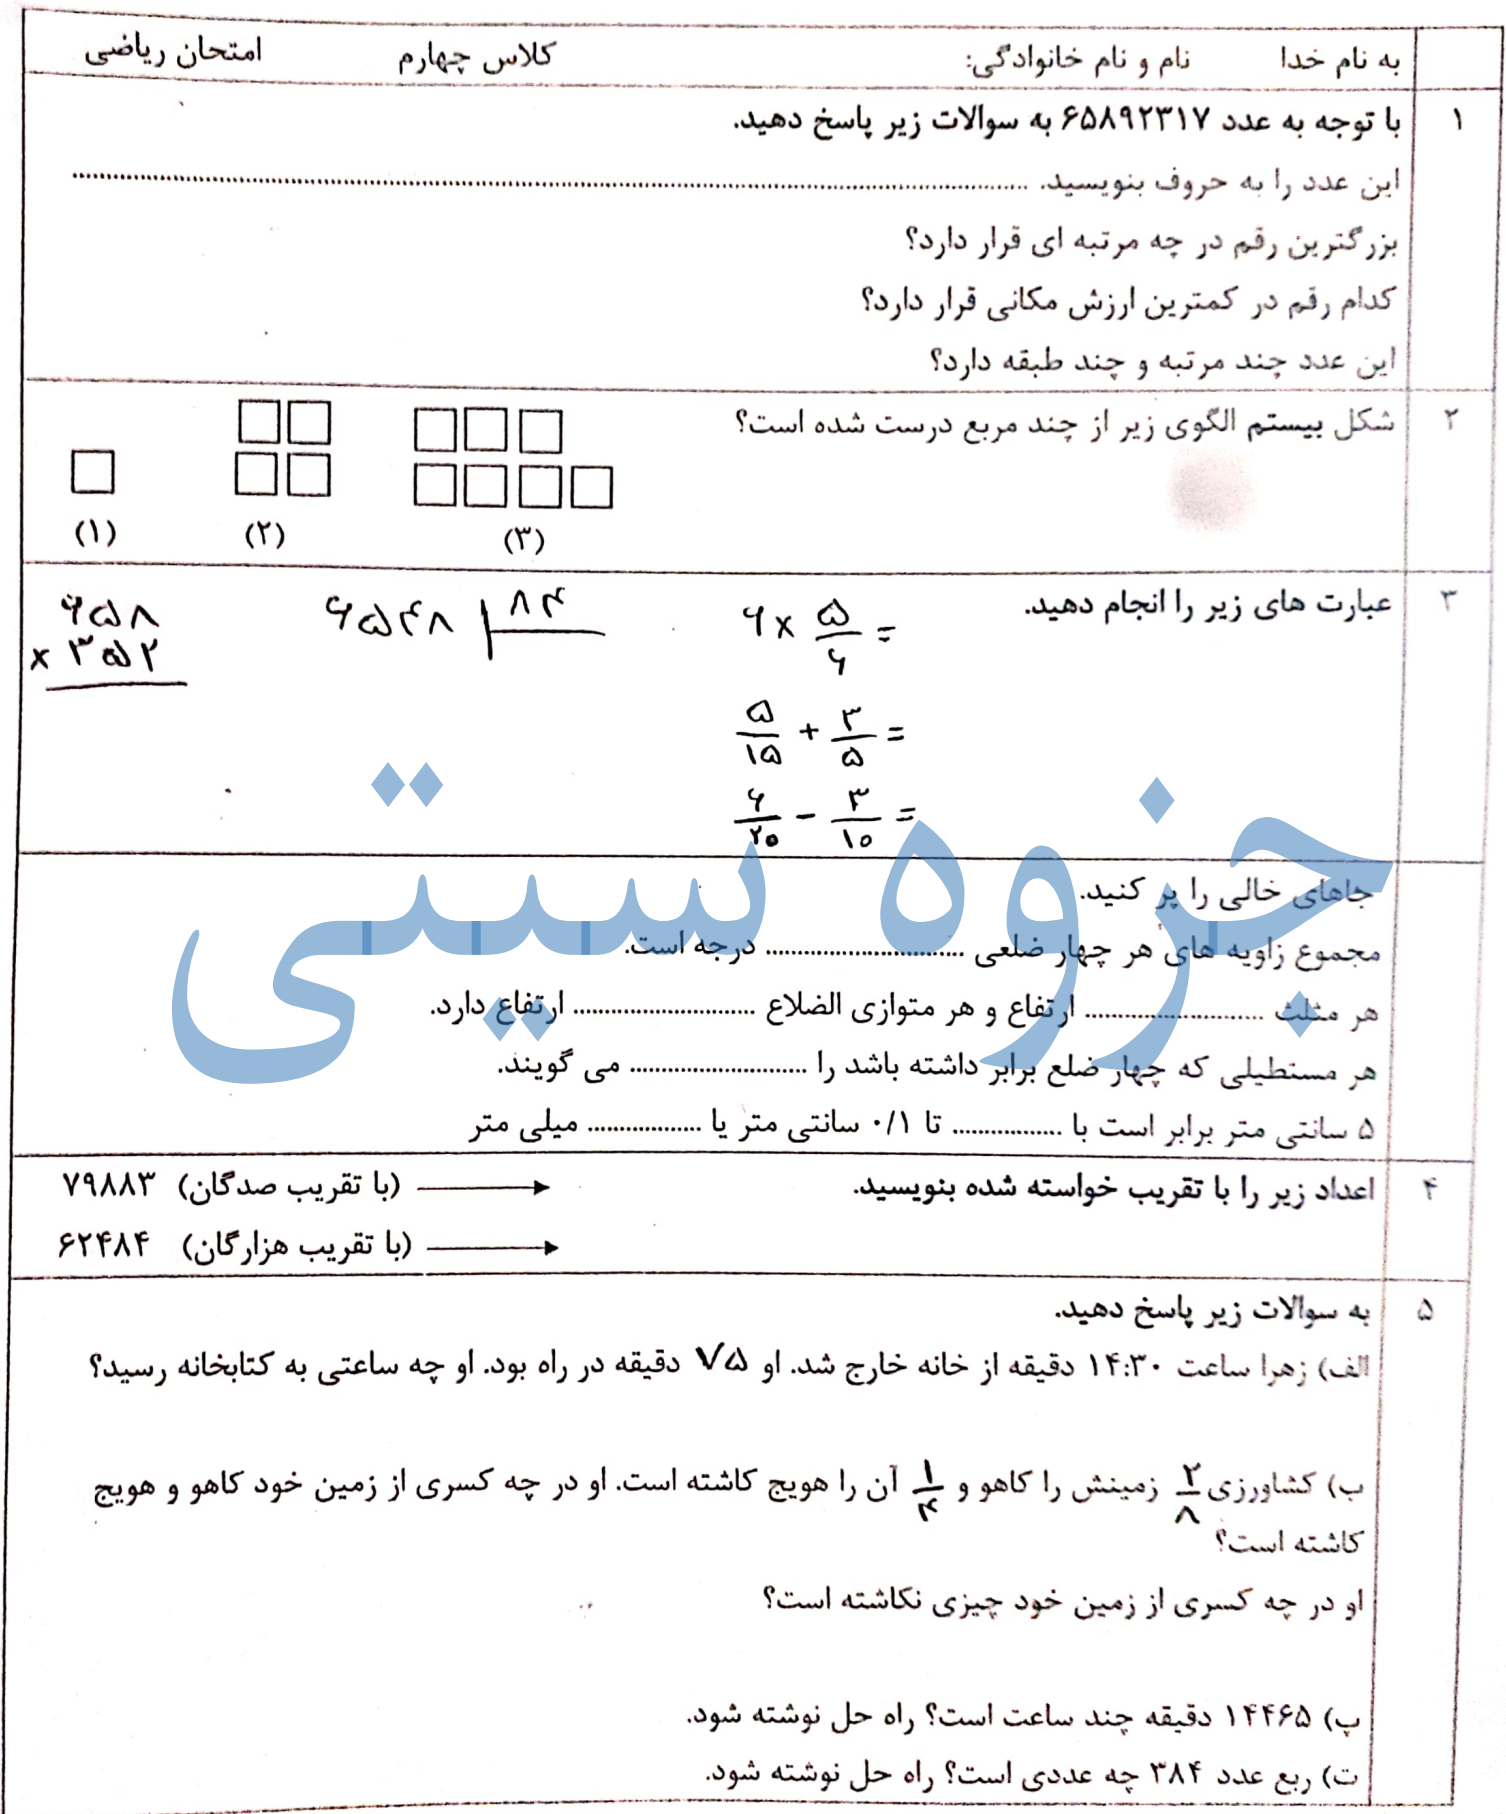 به نام خدا نام و نام خانوادگی: کلاس چهارم امتحان ریاضی
۱ با توجه به عدد ۶۵۸۹۲۳۱۷ به سوالات زیر پاسخ دهید.
این عدد را به حروف بنویسید. ........................................
بزرگترین رقم در چه مرتبه ای قرار دارد؟
کدام رقم در کمترین ارزش مکانی قرار دارد؟
این عدد چند مرتبه و چند طبقه دارد؟
۲ شکل بیستم الگوی زیر از چند مربع درست شده است؟
(۱) (۲) (۳)
۳ عبارت های زیر را انجام دهید.
۶ × ۵/۶ =
۶۵۴۸ | ۸۴
۶۵۸
× ۳۵۲
۵/۱۵ + ۳/۵ =
۶/۲۰ - ۳/۱۰ =
جزوه سیتی
جاهای خالی را پر کنید.
مجموع زاویه های هر چهار ضلعی .................... درجه است.
هر مثلث .................... ارتفاع و هر متوازی الضلاع .................... ارتفاع دارد.
هر مستطیلی که چهار ضلع برابر داشته باشد را .................... می گویند.
۵ سانتی متر برابر است با ................ تا ۰/۱ سانتی متر یا ................ میلی متر
۴ اعداد زیر را با تقریب خواسته شده بنویسید.
۷۹۸۸۳ (با تقریب صدگان) →
۶۲۴۸۴ (با تقریب هزارگان) →
۵ به سوالات زیر پاسخ دهید.
الف) زهرا ساعت ۱۴:۳۰ دقیقه از خانه خارج شد. او ۷۵ دقیقه در راه بود. او چه ساعتی به کتابخانه رسید؟
ب) کشاورزی ۲/۸ زمینش را کاهو و ۱/۴ آن را هویج کاشته است. او در چه کسری از زمین خود کاهو و هویج
کاشته است؟
او در چه کسری از زمین خود چیزی نکاشته است؟
پ) ۱۴۴۶۵ دقیقه چند ساعت است؟ راه حل نوشته شود.
ت) ربع عدد ۳۸۴ چه عددی است؟ راه حل نوشته شود.